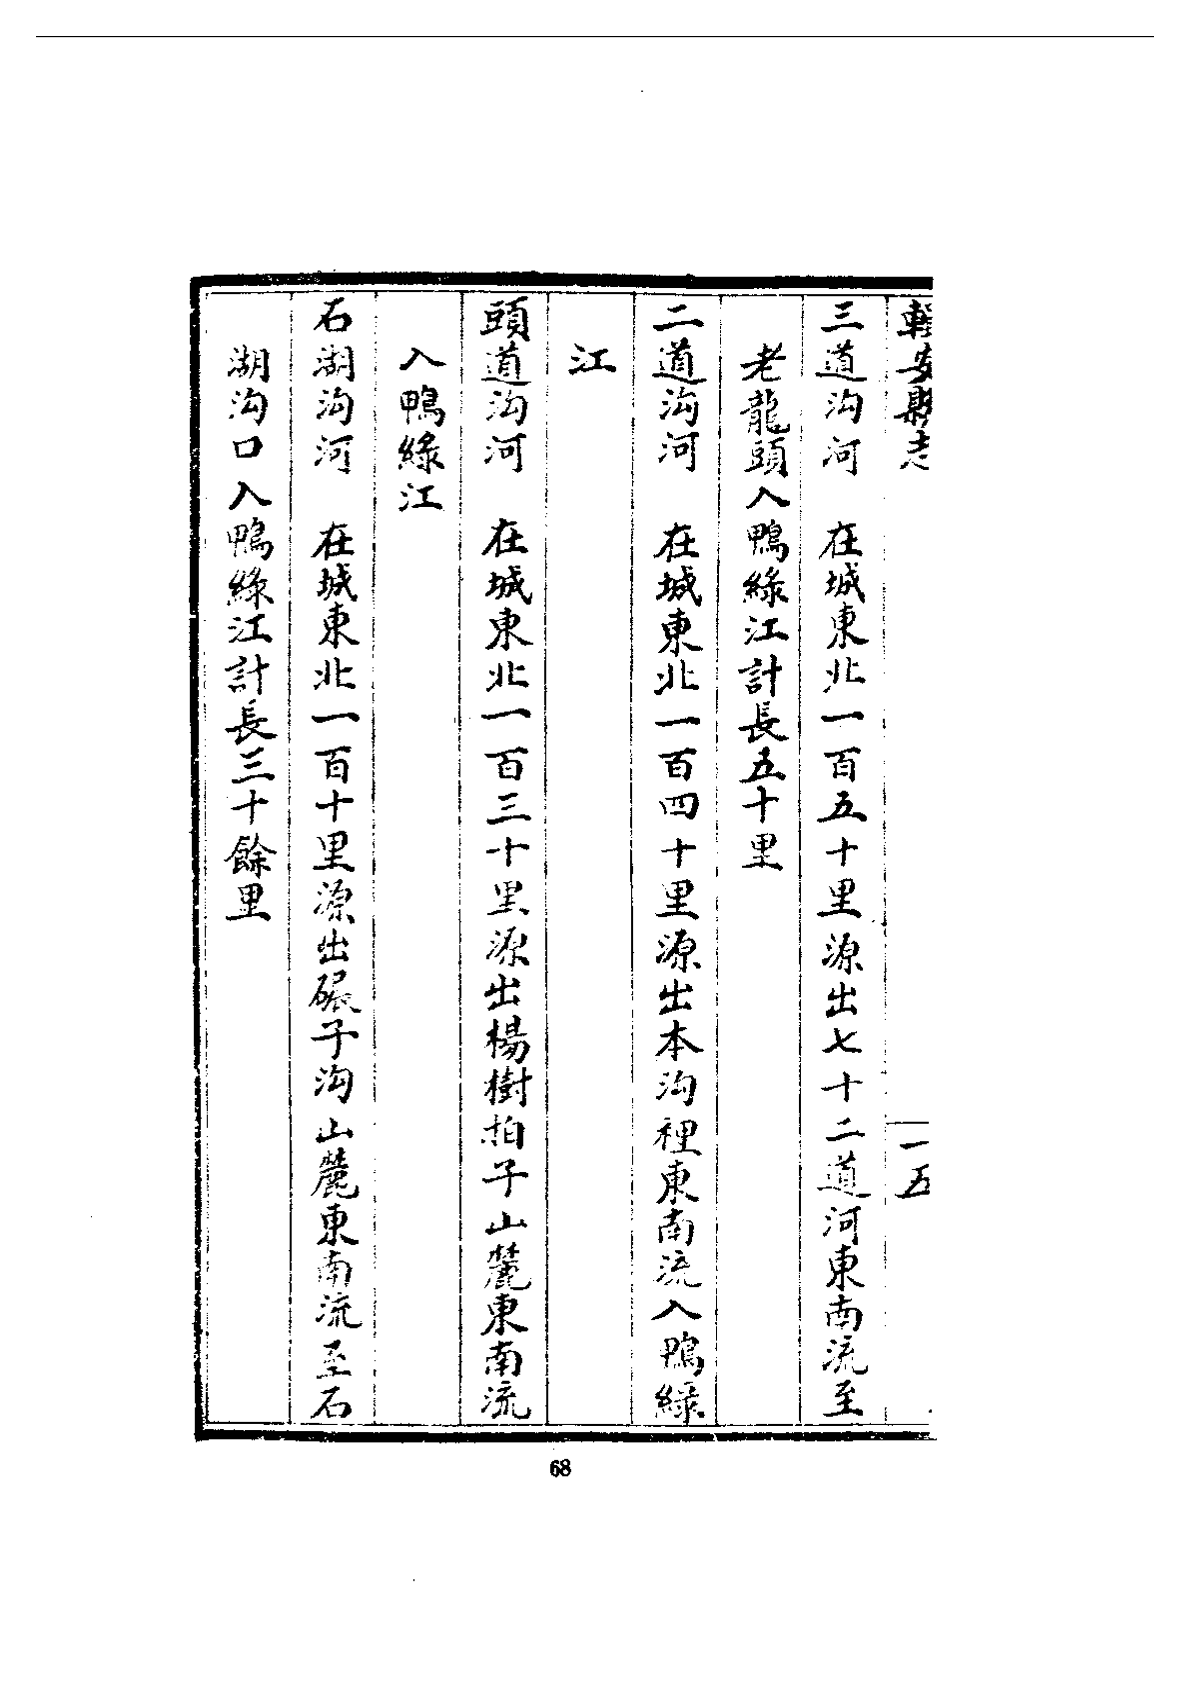 輯安縣志
一五
三道沟河　在城東北一百五十里源出七十二道河東南流至
老龍頭入鴨綠江計長五十里
二道沟河　在城東北一百四十里源出本沟裡東南流入鴨綠
江
頭道沟河　在城東北一百三十里源出楊樹拍子山麓東南流
入鴨綠江
石湖沟河　在城東北一百十里源出碾子沟山麓東南流至石
湖沟口入鴨綠江計長三十餘里
68